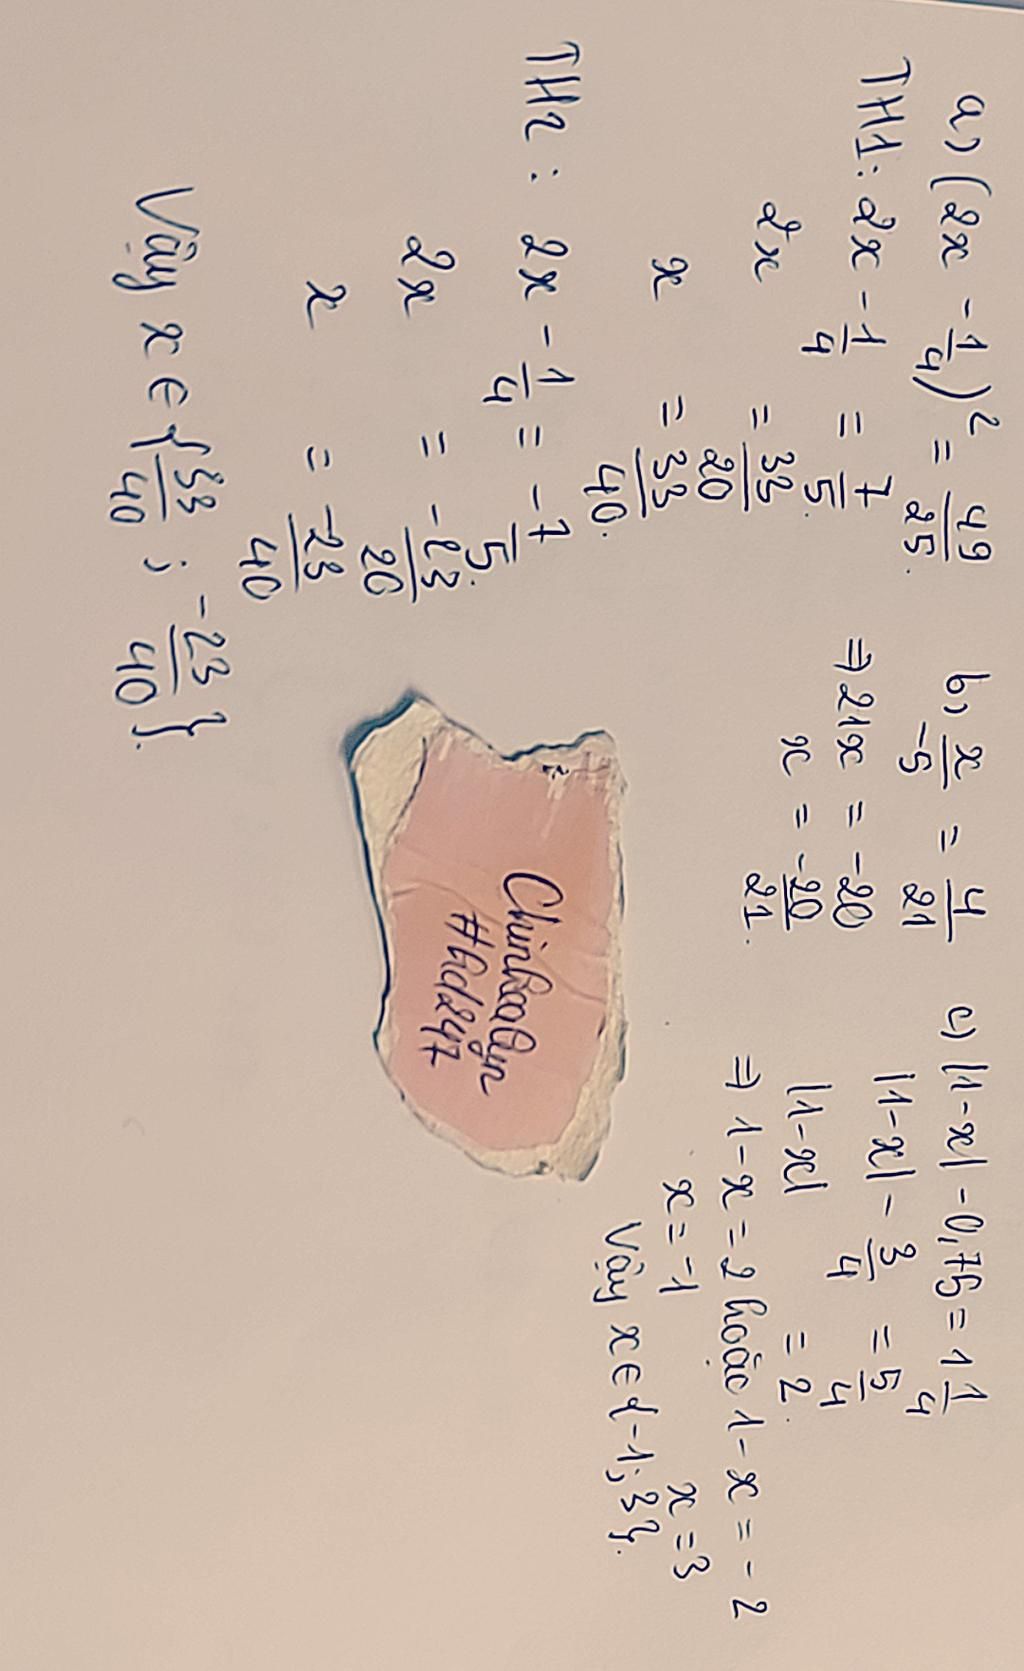 a) (2x - 1/4)² = 49/25.
TH1: 2x - 1/4 = 7/5.
2x = 33/20
x = 33/40.
TH2: 2x - 1/4 = -7/5.
2x = -23/20
x = -23/40
Vậy x ∈ {33/40 ; -23/40}.
b) x/-5 = 4/21
⇒ 21x = -20
x = -20/21.
c) |1-x| - 0,75 = 1 1/4
|1-x| - 3/4 = 5/4
|1-x| = 2.
⇒ 1-x = 2 hoặc 1-x = -2
x = -1 x = 3
Vậy x ∈ {-1; 3}.
#hd247